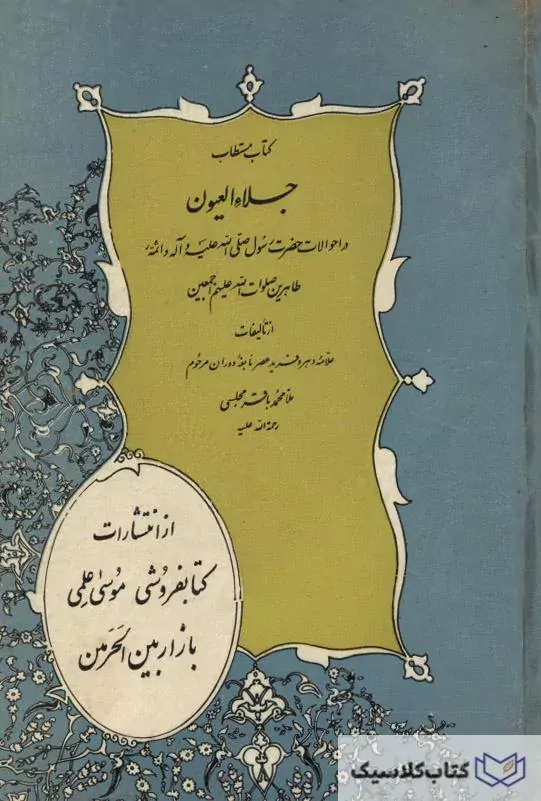 کتاب مستطاب
جلاء العیون
در احوالات حضرت رسول صلی الله علیه و آله و ائمه
طاهرین صلوات الله علیهم اجمعین
از تألیفات
علامه دهر و فرید عصر نابغه دوران مرحوم
ملا محمد باقر مجلسی
رحمة الله علیه
از انتشارات
کتابفروشی موسی علمی
بازار بین الحرمین
کتاب کلاسیک